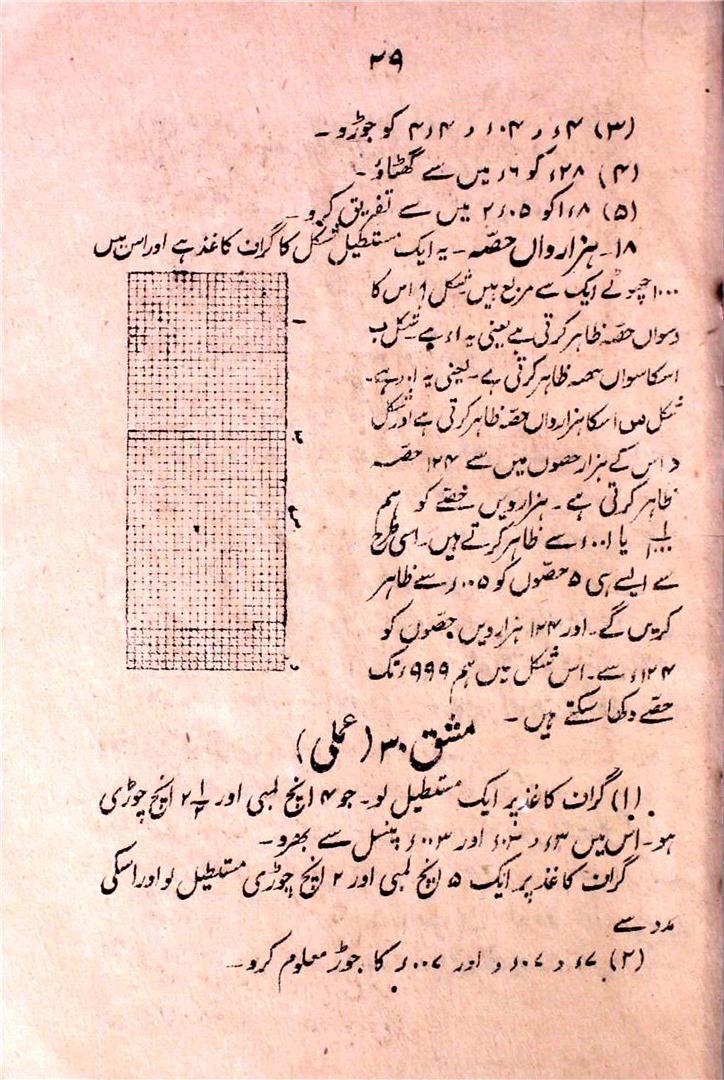 ۲۹
(۳) ۴ء و ۰۴ء و ۴ء۴ کو جوڑو ۔
(۴) ۲۸ء کو ۶ء میں سے گھٹاؤ ۔
(۵) ۸ء۱ کو ۰۵ء۲ میں سے تفریق کرو ۔
۱۸۔ ہزارواں حصّہ ۔ یہ ایک مستطیل شکل کا گراف کاغذ ہے اور اس میں
۱۰۰۰ چھوٹے ایک سے مربع ہیں شکل ا اس کا
دسواں حصّہ ظاہر کرتی ہے یعنی یہ ۱ء ہے ۔ شکل ب
اسکا سواں حصہ ظاہر کرتی ہے ۔ یعنی یہ ۰۱ء ہے ۔
شکل س اسکا ہزارواں حصّہ ظاہر کرتی ہے اور شکل
د اس کے ہزار حصوں میں سے ۱۲۴ حصّہ
ظاہر کرتی ہے ۔ ہزارویں حصّے کو ہم
۱/۱۰۰۰ یا ۰۰۱ء سے ظاہر کرتے ہیں ۔ اسی طرح
سے ایسے ہی ۵ حصّوں کو ۰۰۵ء سے ظاہر
کریں گے ۔ اور ۱۲۴ ہزارویں حصّوں کو
۱۲۴ء سے ۔ اس شکل میں ہم ۹۹۹ء تک
حصّے دکھا سکتے ہیں ۔
مشق ۳۰ (عملی)
(۱) گراف کاغذ پر ایک مستطیل لو ۔ جو ۴ انچ لمبی اور ۲ ۱/۲ انچ چوڑی
ہو ۔ اس میں ۳ء و ۰۳ء اور ۰۰۳ء پنسل سے بھرو ۔
گراف کاغذ پر ایک ۵ انچ لمبی اور ۲ انچ چوڑی مستطیل لو اور اسکی
مدد سے
(۲) ۷ء و ۰۷ء و اور ۰۰۷ء کا جوڑ معلوم کرو ۔